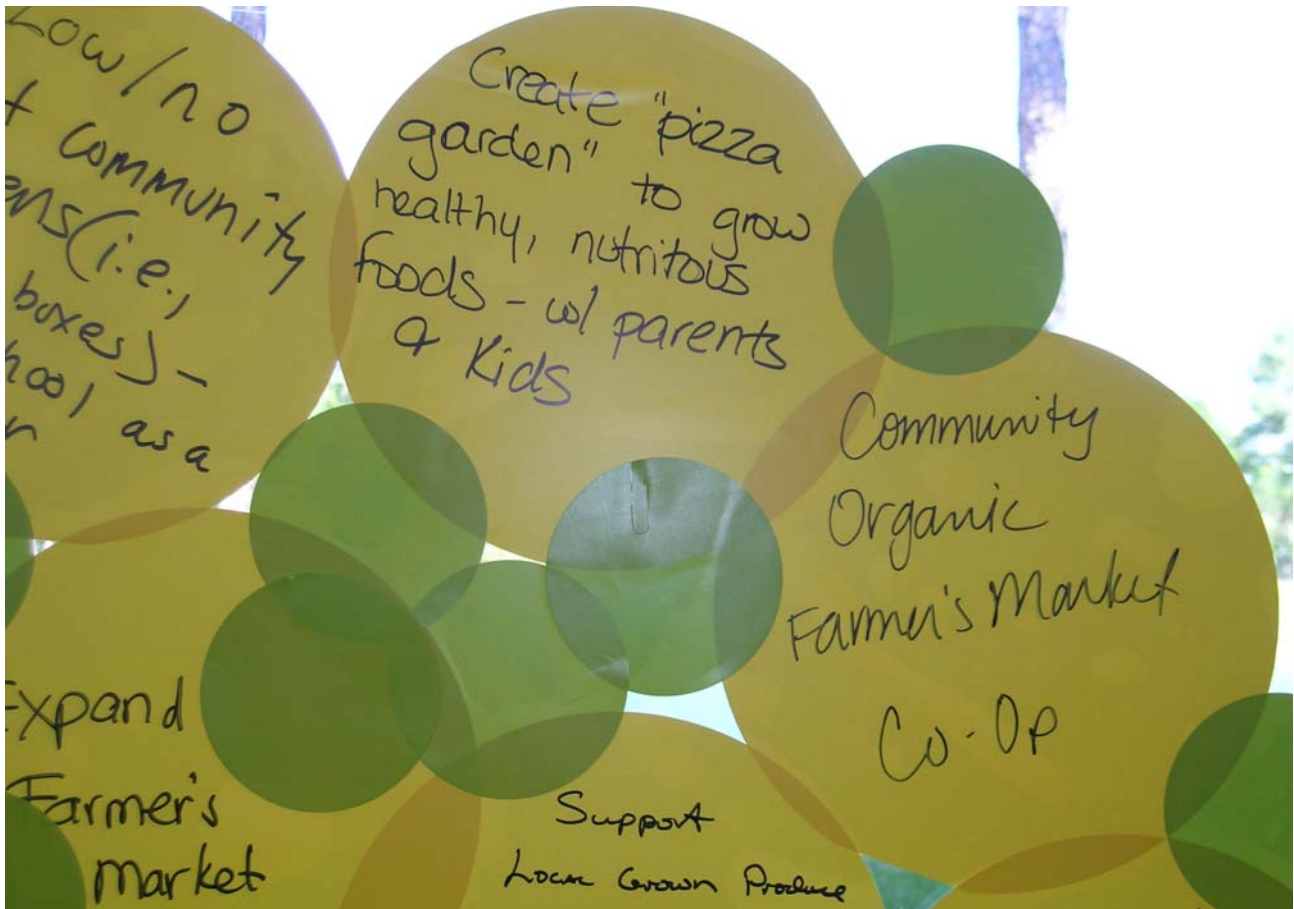 Low/no
community
(i.e.,
boxes) -
as a
Create "pizza
garden" to grow
healthy, nutritous
foods - w/ parents
& Kids
Community
Organic
Farmer's Market
Co-Op
Expand
Farmer's
Market
Support
Local Grown Produce